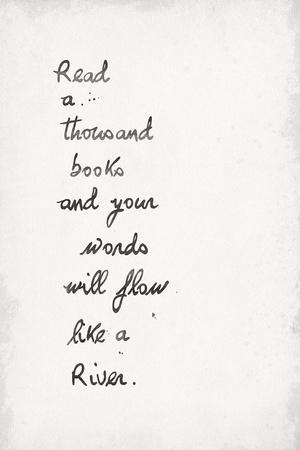 Read
a
thousand
books
and your
words
will flow
like a
River.